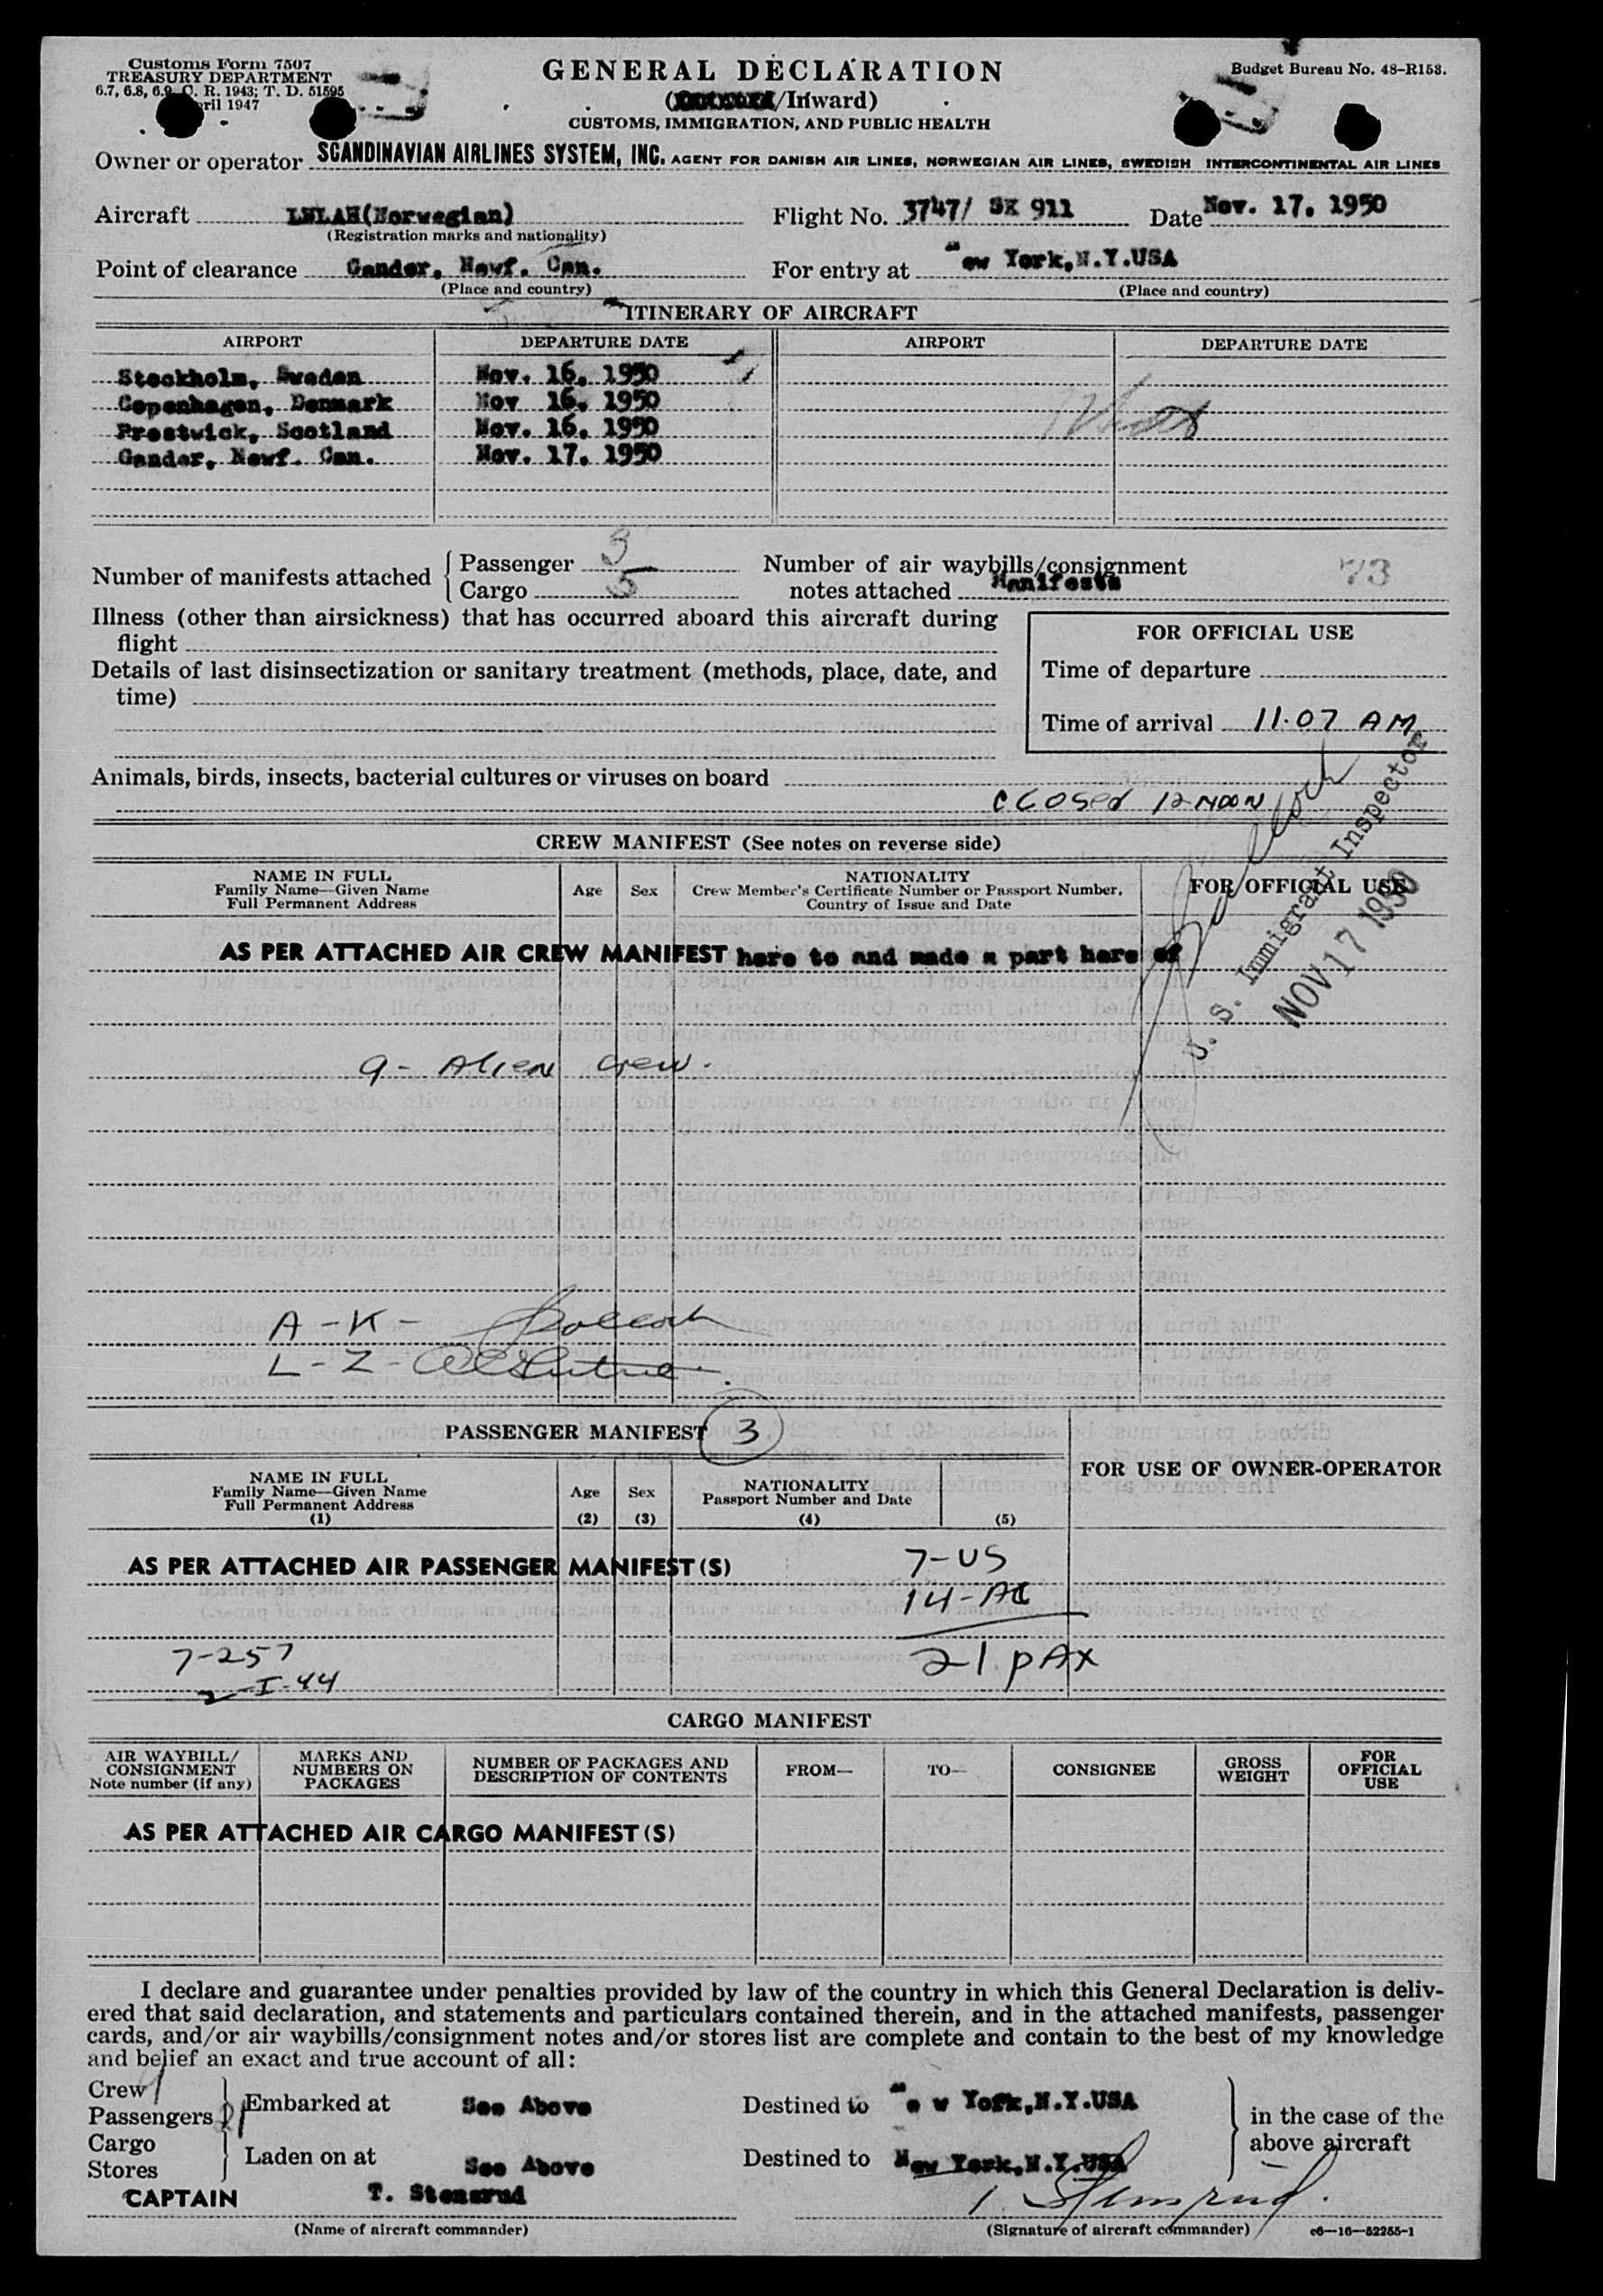 Customs Form 7507
TREASURY DEPARTMENT
6.7, 6.8, 6.9, C. R. 1943; T. D. 51595
ril 1947
GENERAL DECLARATION
(/Inward)
CUSTOMS, IMMIGRATION, AND PUBLIC HEALTH
Budget Bureau No. 48-R153.
Owner or operator SCANDINAVIAN AIRLINES SYSTEM, INC. AGENT FOR DANISH AIR LINES, NORWEGIAN AIR LINES, SWEDISH INTERCONTINENTAL AIR LINES
Aircraft LNLAH(Norwegian) Flight No. 3747/ SK 911 Date Nov. 17, 1950
(Registration marks and nationality)
Point of clearance Gander, Newf. Can. For entry at New York,N.Y.USA
(Place and country) (Place and country)
ITINERARY OF AIRCRAFT
AIRPORT DEPARTURE DATE AIRPORT DEPARTURE DATE
Stockholm, Sweden Nov. 16, 1950
Copenhagen, Denmark Nov 16, 1950
Prestwick, Scotland Nov. 16, 1950
Gander, Newf. Can. Nov. 17, 1950
Number of manifests attached { Passenger 3
Cargo 5
Number of air waybills/consignment 73
notes attached Manifests
Illness (other than airsickness) that has occurred aboard this aircraft during
flight
Details of last disinsectization or sanitary treatment (methods, place, date, and
time)
FOR OFFICIAL USE
Time of departure
Time of arrival 11.07 AM
Animals, birds, insects, bacterial cultures or viruses on board
CLOSED 12 NOON
CREW MANIFEST (See notes on reverse side)
NAME IN FULL
Family Name—Given Name
Full Permanent Address
Age
Sex
NATIONALITY
Crew Member's Certificate Number or Passport Number.
Country of Issue and Date
FOR OFFICIAL USE
U. S. Immigrant Inspector
NOV 17 1950
AS PER ATTACHED AIR CREW MANIFEST here to and made a part here of
9 - Alien crew.
A - K -
L - Z -
PASSENGER MANIFEST 3
FOR USE OF OWNER-OPERATOR
NAME IN FULL
Family Name—Given Name
Full Permanent Address
(1)
Age
(2)
Sex
(3)
NATIONALITY
Passport Number and Date
(4)
(5)
AS PER ATTACHED AIR PASSENGER MANIFEST(S)
7-US
14-AL
21 PAX
7-257
2-I-44
CARGO MANIFEST
AIR WAYBILL/
CONSIGNMENT
Note number (if any)
MARKS AND
NUMBERS ON
PACKAGES
NUMBER OF PACKAGES AND
DESCRIPTION OF CONTENTS
FROM—
TO—
CONSIGNEE
GROSS
WEIGHT
FOR
OFFICIAL
USE
AS PER ATTACHED AIR CARGO MANIFEST(S)
I declare and guarantee under penalties provided by law of the country in which this General Declaration is deliv-
ered that said declaration, and statements and particulars contained therein, and in the attached manifests, passenger
cards, and/or air waybills/consignment notes and/or stores list are complete and contain to the best of my knowledge
and belief an exact and true account of all:
Crew 9
Passengers 21
Embarked at See Above Destined to New York,N.Y.USA
Cargo
Stores
Laden on at See Above Destined to New York,N.Y.USA
in the case of the
above aircraft
CAPTAIN T. Stensrud T. Stensrud.
(Name of aircraft commander) (Signature of aircraft commander) c6—16—52255-1